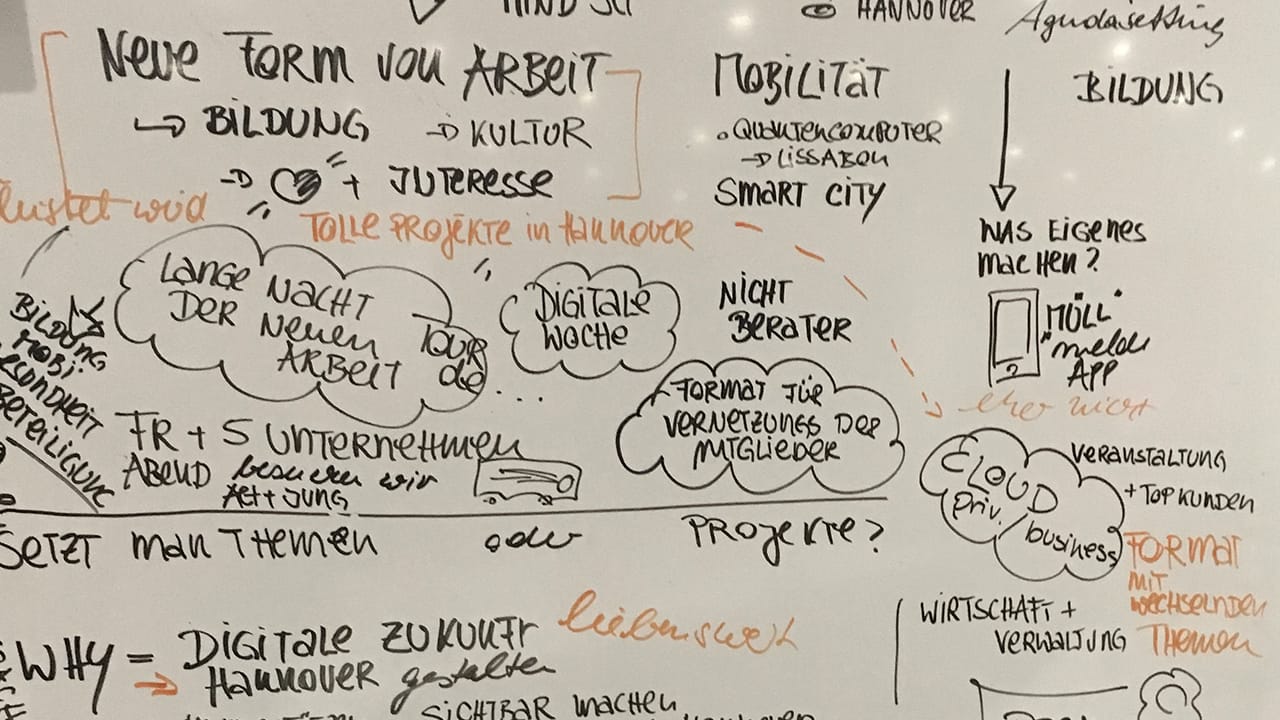 HANNOVER
Agendasetting
NEUE FORM VON ARBEIT
→ BILDUNG → KULTUR
→ + INTERESSE
MOBILITÄT
• QUANTENCOMPUTER
→ LISSABON
SMART CITY
BILDUNG
WAS EIGENES
MACHEN?
"MÜLL"
melde
APP
eher nicht
wird
TOLLE PROJEKTE in HANNOVER
LANGE NACHT
DER NEUEN
ARBEIT
TOUR
de...
DIGITALE
WOCHE
NICHT
BERATER
FORMAT FÜR
VERNETZUNGS DER
MITGLIEDER
BILDUNG
MOBI.
ESUNDHEIT
BETEILIGUNG
FR + 5 UNTERNEHMEN
ABEND besuchen wir
ALT + JUNG
CLOUD
priv. / business
VERANSTALTUNG
+ TOP KUNDEN
FORMAT
MIT
WECHSELNDEN
THEMEN
SETZT MAN THEMEN oder PROJEKTE?
WIRTSCHAFT +
VERWALTUNG
WHY = DIGITALE ZUKUNFT liebenswert
→ HANNOVER gestalten
SICHTBAR MACHEN